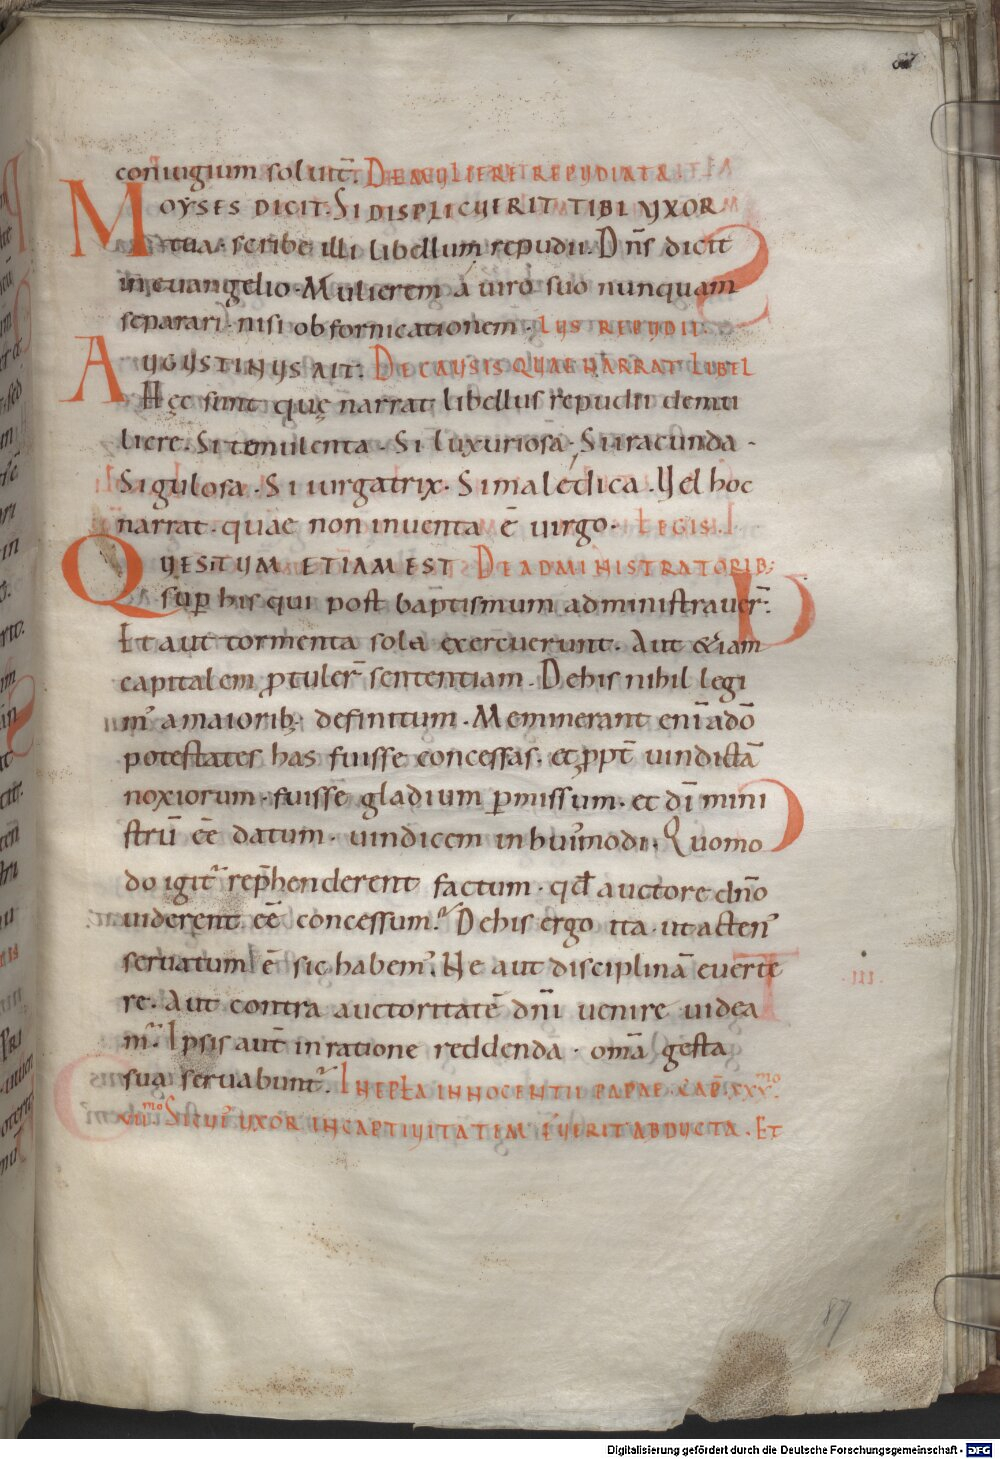 87
coniugium soluit̄. DE MULIERE REPUDIATA
MOYSES DICIT. SI DISPLICUERIT TIBI UXOR
tua. scribe illi libellum repudii. Dn̄s dicit
in euangelio. Mulierem á uiro suo nunquam
separari. nisi ob fornicationem.
AUGUSTINUS AIT. DE CAUSIS QUAE NARRAT LIBEL
Hęc sunt quę narrat libellus repudii demu
liere. Si temulenta. Si luxuriosa. Si iracunda.
Si gulosa. Si iurgatrix. Si maledica. Vel hoc
narrat. quae non inuenta ē uirgo.
QUESITUM ETIAM EST DE ADMINISTRATORIB;
sup̄ his qui post baptismum administrauer̄.
Et aut tormenta sola exercuerunt. Aut &iam
capitalem ꝓtuler̄ sententiam. De his nihil legi
m' a maiorib; definitum. Meminerant eni᷄ a dō
potestates has fuisse concessas. et ꝓpt̄ uindictā
noxiorum. fuisse gladium p̄missum. et dī mini
strū eē datum. uindicem in hui'modi. Quomo
do igit᷑ rep̄henderent factum. qđ auctore dn̄o
uiderent eē concessum. De his ergo ita. ut acten'
seruatum ē sic habem'. Ne aut disciplinā euerte
re. Aut contra auctoritatē dn̄i uenire uidea
m᷑. Ipsis aut̄ in ratione reddenda. om̄a gesta
sua seruabunt᷑. IN EPŁA INNOCENTII PAPAE. CAP̄ XXX.mo
VII.mo SI CUI' UXOR IN CAPTIUITATEM FUERIT ABDUCTA. ET
87
Digitalisierung gefördert durch die Deutsche Forschungsgemeinschaft - DFG